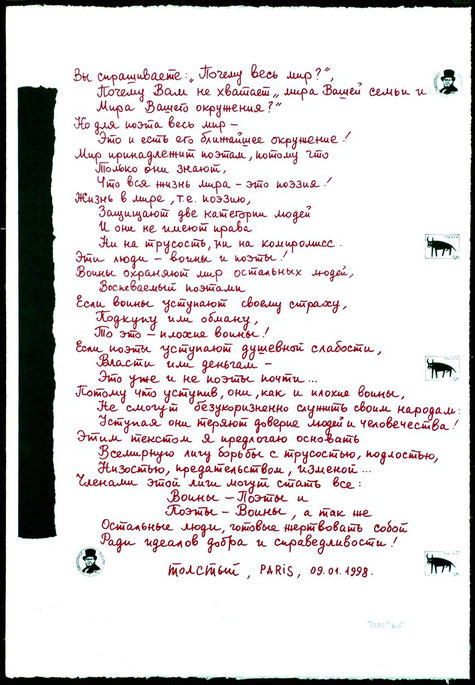 Вы спрашиваете: „Почему весь мир?",
Почему Вам не хватает „мира Вашей семьи и
Мира Вашего окружения?"
Но для поэта весь мир —
Это и есть его ближайшее окружение!
Мир принадлежит поэтам, потому что
Только они знают,
Что вся жизнь мира – это поэзия!
Жизнь в мире, т.е. поэзию,
Защищают две категории людей
И они не имеют права
Ни на трусость, ни на компромисс.
Эти люди – воины и поэты!
Воины охраняют мир остальных людей,
Воспеваемый поэтами
Если воины уступают своему страху,
Подкупу или обману,
То это – плохие воины!
Если поэты уступают душевной слабости,
Власти или деньгам –
Это уже и не поэты почти...
Потому что уступив, они, как и плохие воины,
Не смогут безукоризненно служить своим народам:
Уступая они теряют доверие людей и человечества!
Этим текстом я предлогаю основать
Всемирную лигу борьбы с трусостью, подлостью,
Низостью, предательством, изменой...
Членами этой лиги могут стать все:
Воины – Поэты и
Поэты – Воины, а так же
Остальные люди, готовые жертвовать собой
Ради идеалов добра и справедливости!
Толстый, PARIS, 09.01.1998.